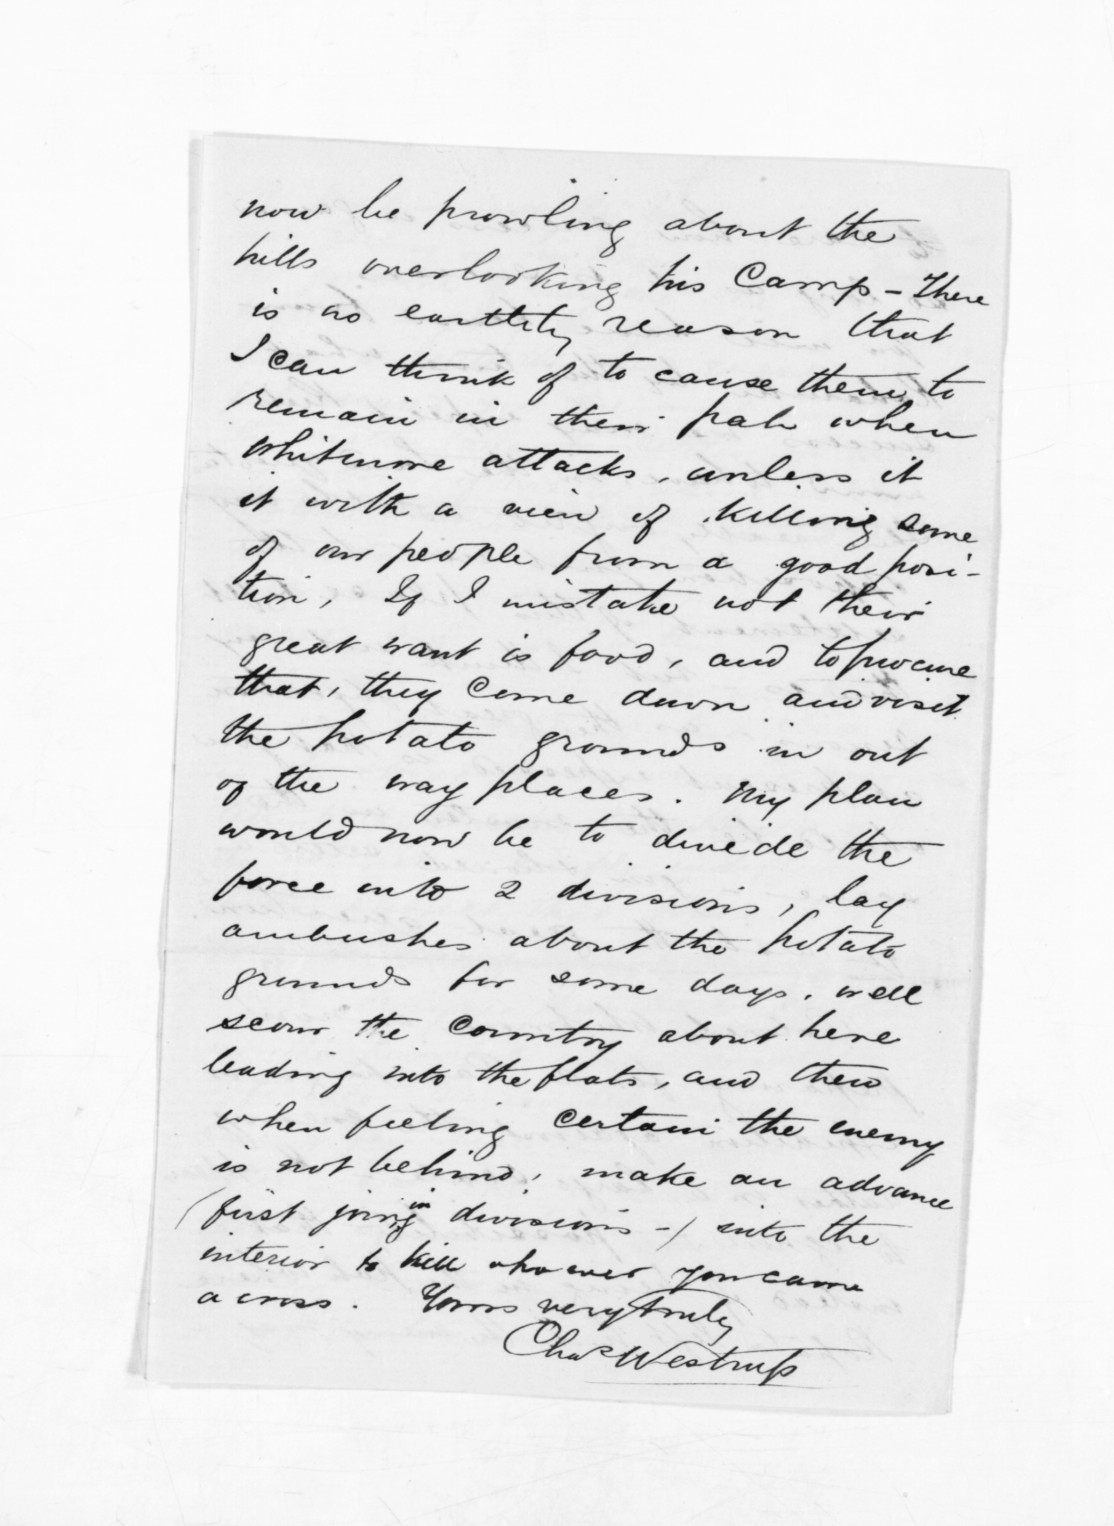 now be prowling about the
hills overlooking his Camp - There
is no earthly reason that
I can think of to cause them to
remain in their pah when
Whitmore attacks, unless it
it with a view of killing some
of our people from a good posi-
tion, If I mistake not their
great want is food, and to procure
that, they come down and visit
the potato grounds in out
of the way places. My plan
would now be to divide the
force into 2 divisions, lay
ambushes about the potato
grounds for some days, well
scour the Country about here
leading into the flats, and then
when feeling certain the enemy
is not behind, make an advance
(first joining in divisions -) into the
interior to kill whoever you came
across. Yours very truly
Chas Westrup